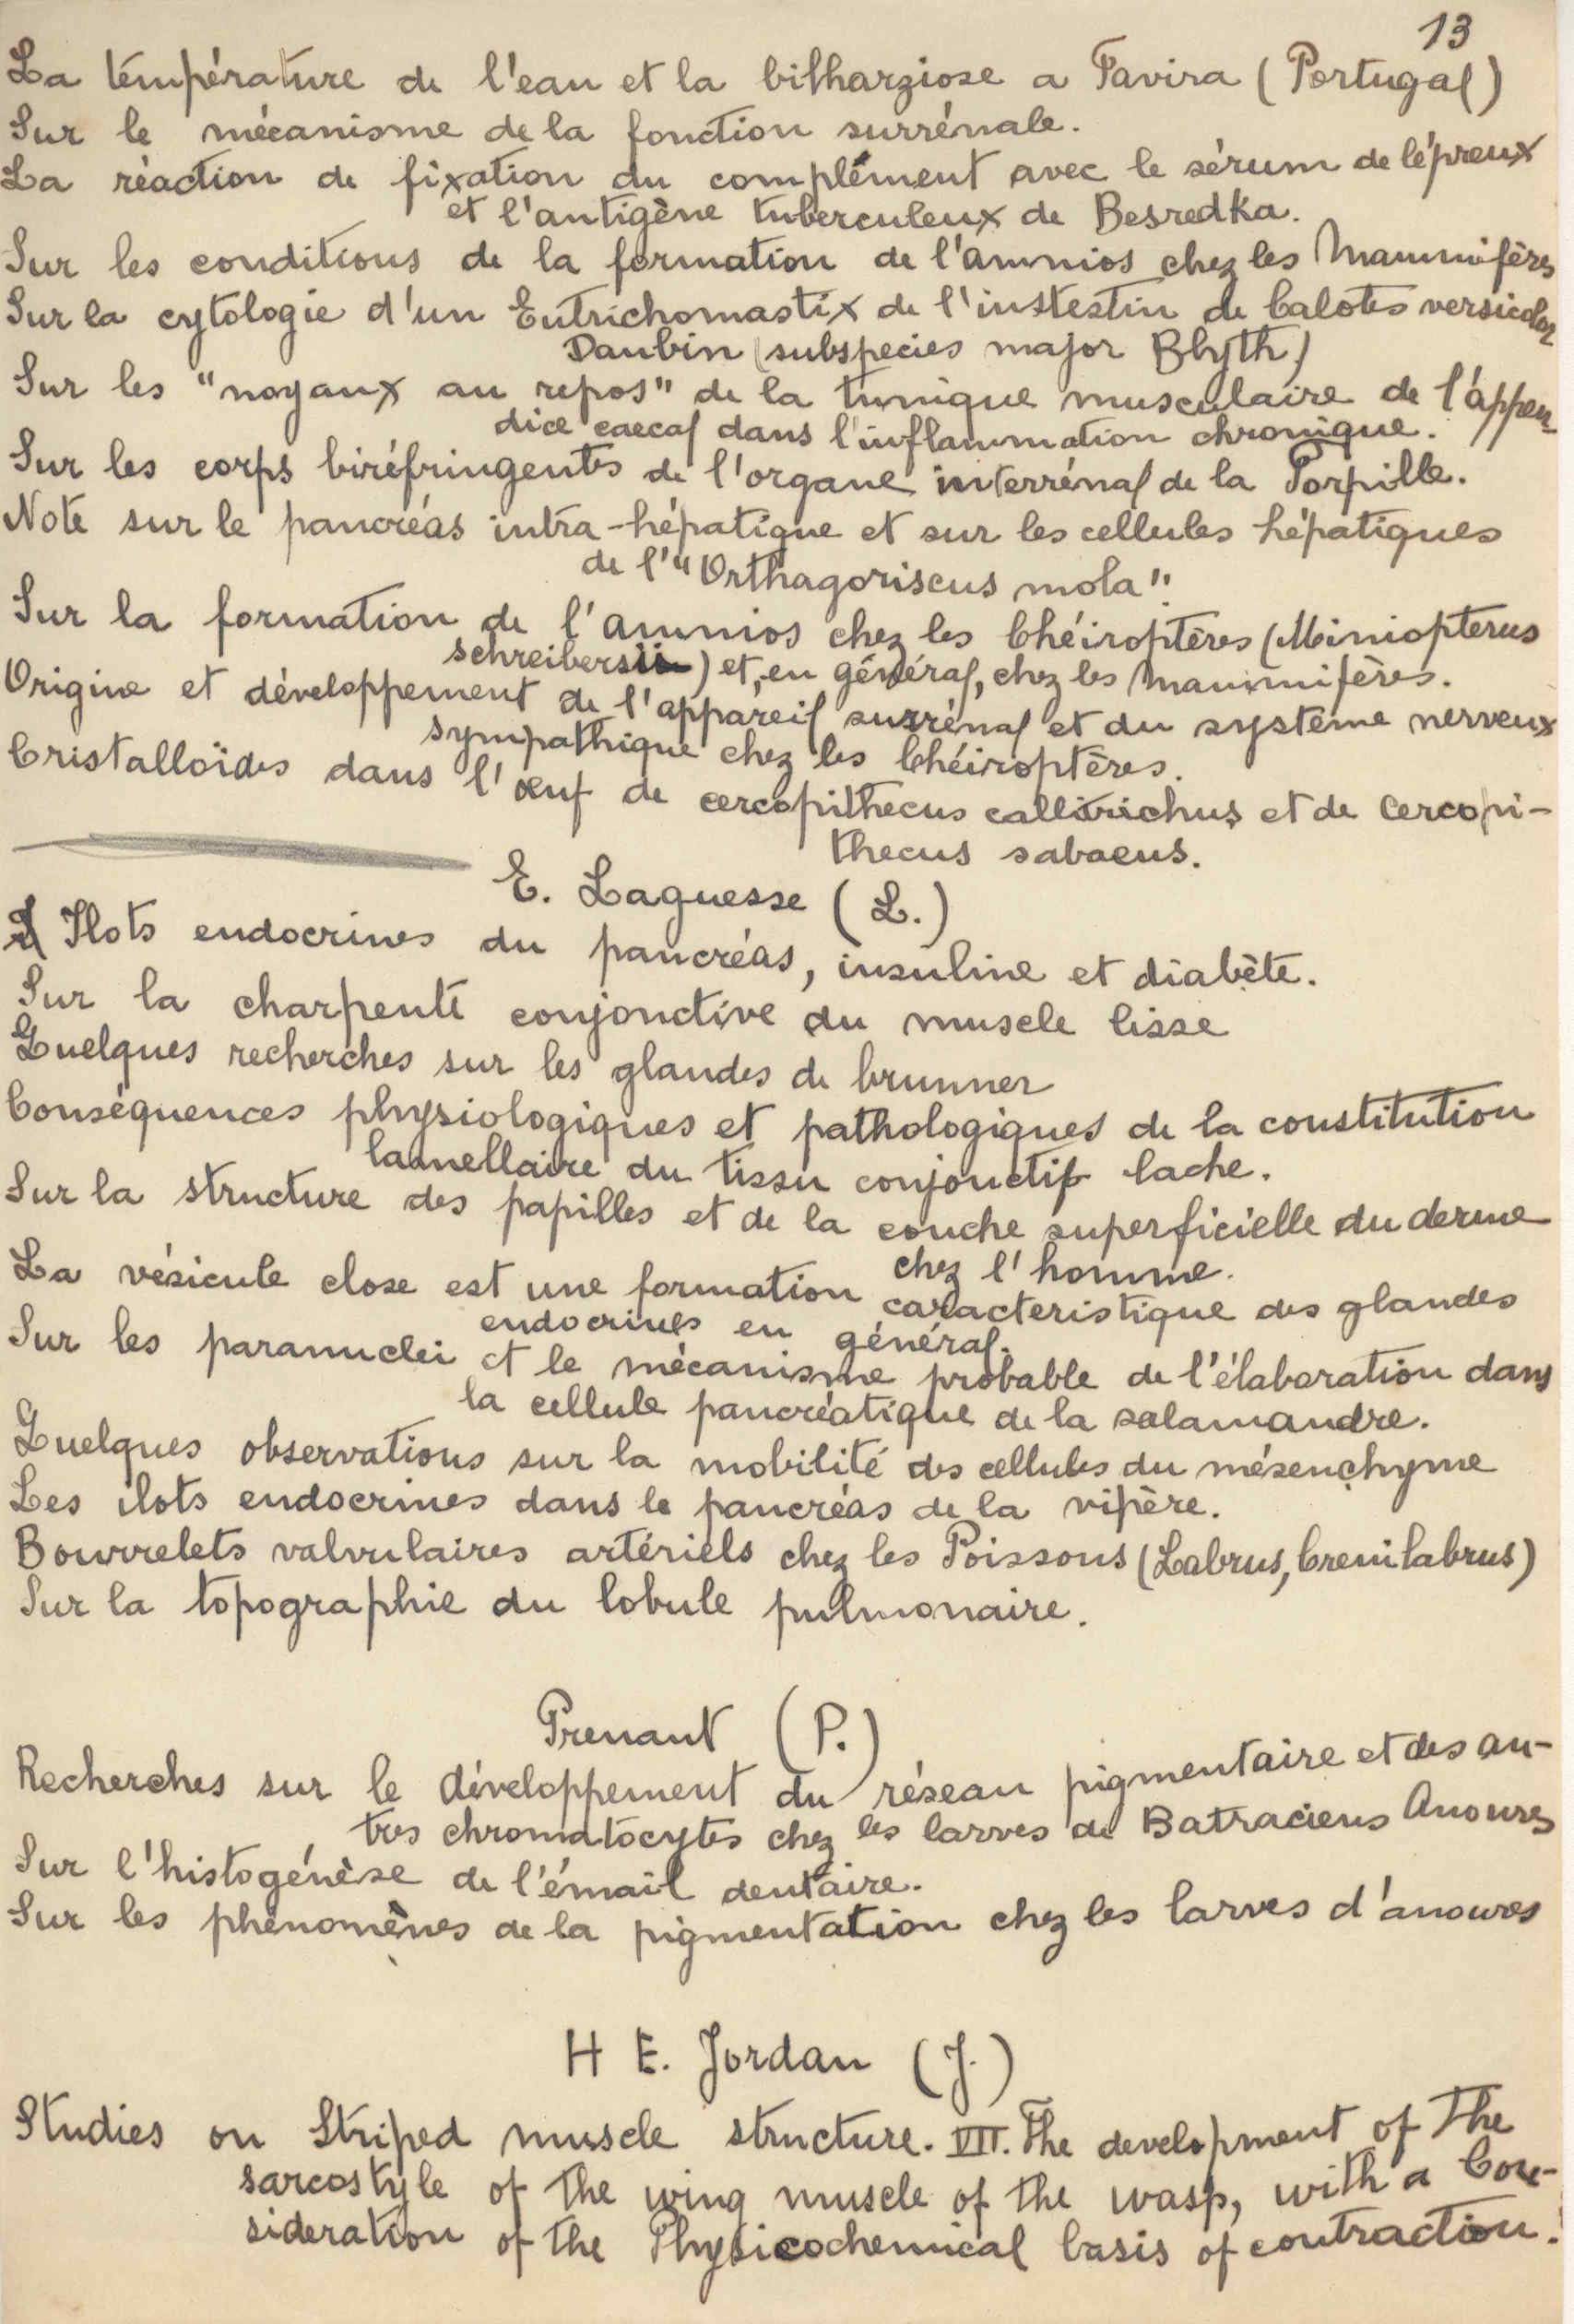 13
La température de l'eau et la bilharziose a Tavira (Portugal)
Sur le mécanisme de la fonction surrénale.
La réaction de fixation du complément avec le sérum de lépreux
et l'antigène tuberculeux de Besredka.
Sur les conditions de la formation de l'amnios chez les Mammifères
Sur la cytologie d'un Eutrichomastix de l'instestin de Calotes versicolor
Daubin (subspecies major Blyth)
Sur les "noyaux au repos" de la tunique musculaire de l'appen-
dice caecal dans l'inflammation chronique.
Sur les corps biréfringents de l'organe interrénal de la Torpille.
Note sur le pancréas intra-hépatique et sur les cellules hépatiques
de l'"Orthagoriscus mola".
Sur la formation de l'amnios chez les Chéiroptères (Miniopterus
schreibersii) et, en général, chez les Mammifères.
Origine et développement de l'appareil surrénal et du système nerveux
sympathique chez les Chéiroptères.
Cristalloïdes dans l'œuf de cercopithecus callitrichus et de Cercopi-
thecus sabaeus.
E. Laguesse (L.)
Ilots endocrines du pancréas, insuline et diabète.
Sur la charpente conjonctive du muscle lisse
Quelques recherches sur les glandes de brunner
Conséquences physiologiques et pathologiques de la constitution
lamellaire du tissu conjonctif lache.
Sur la structure des papilles et de la couche superficielle du derme
chez l'homme.
La vésicule close est une formation caracteristique des glandes
endocrines en général.
Sur les paranuclei et le mécanisme probable de l'élaboration dans
la cellule pancréatique de la salamandre.
Quelques observations sur la mobilité des cellules du mésenchyme
Les ilots endocrines dans le pancréas de la vipère.
Bourrelets valvulaires artériels chez les Poissons (Labrus, Crenilabrus)
Sur la topographie du lobule pulmonaire.
Prenant (P.)
Recherches sur le développement du réseau pigmentaire et des au-
tres chromatocytes chez les larves de Batraciens Anoures
Sur l'histogénèse de l'émail dentaire.
Sur les phénomènes de la pigmentation chez les larves d'anoures
H E. Jordan (J.)
Studies on Striped muscle structure. VII. The development of The
sarcostyle of the wing muscle of the wasp, with a Con-
sideration of the Physicochemical basis of contraction.